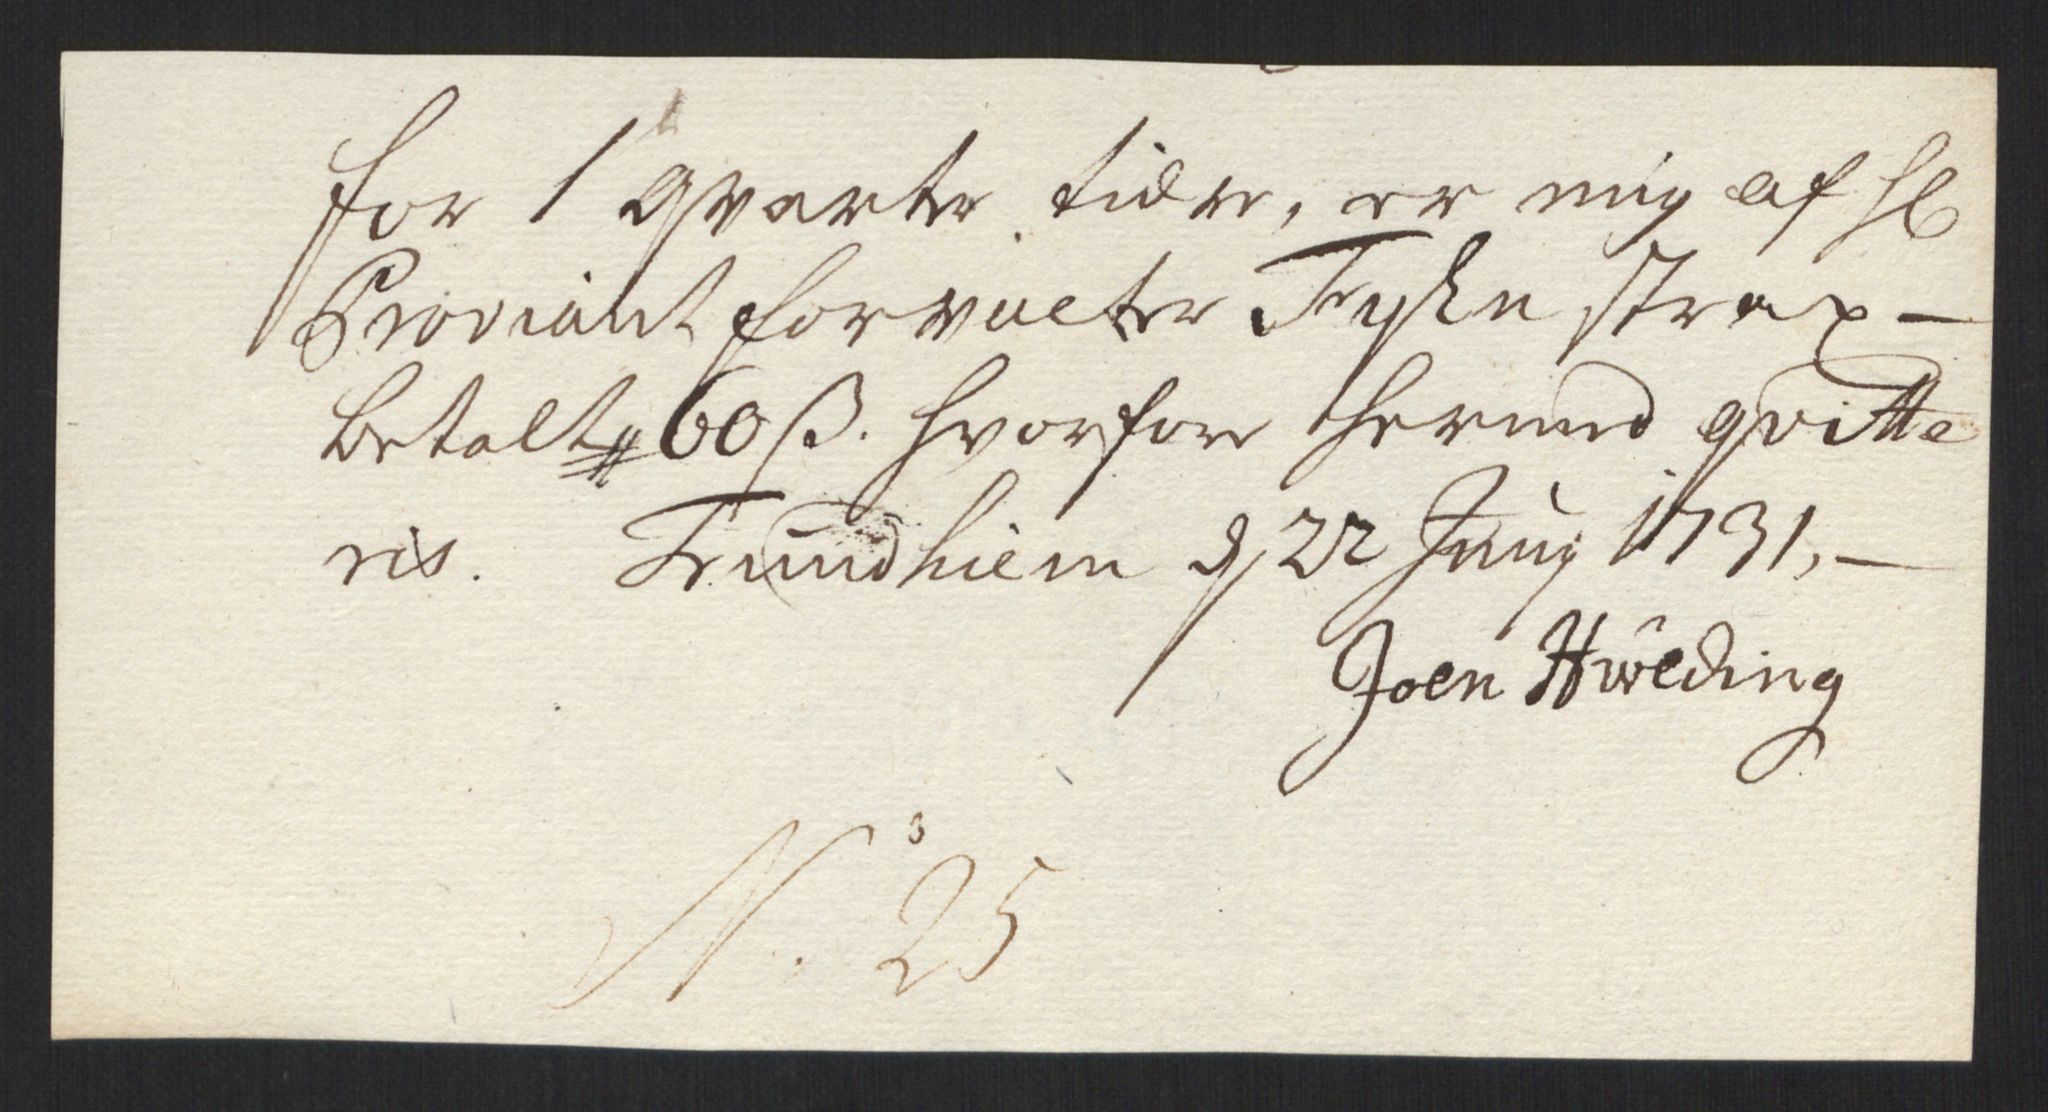 for 1 qvarter tiere, er mig af Hl
Proviantforvalter Tyske strax –
betalt 60 ß. hvorfore hermed qvitte
ris. Trundhiem d 22 Junij 1731, –
Joen Hweding
No. 25